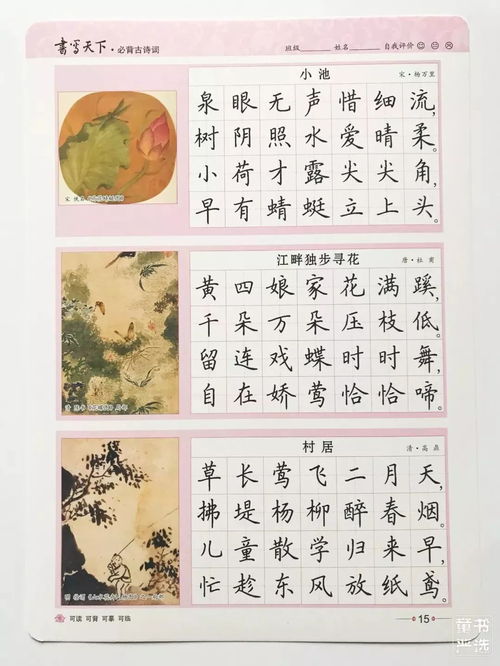 书写天下·必背古诗词
班级 姓名 自我评价
小池
宋·杨万里
泉眼无声惜细流，
树阴照水爱晴柔。
小荷才露尖尖角，
早有蜻蜓立上头。
江畔独步寻花
唐·杜甫
黄四娘家花满蹊，
千朵万朵压枝低。
留连戏蝶时时舞，
自在娇莺恰恰啼。
村居
清·高鼎
草长莺飞二月天，
拂堤杨柳醉春烟。
儿童散学归来早，
忙趁东风放纸鸢。
可读 可背 可摹 可临
15
童书
严选